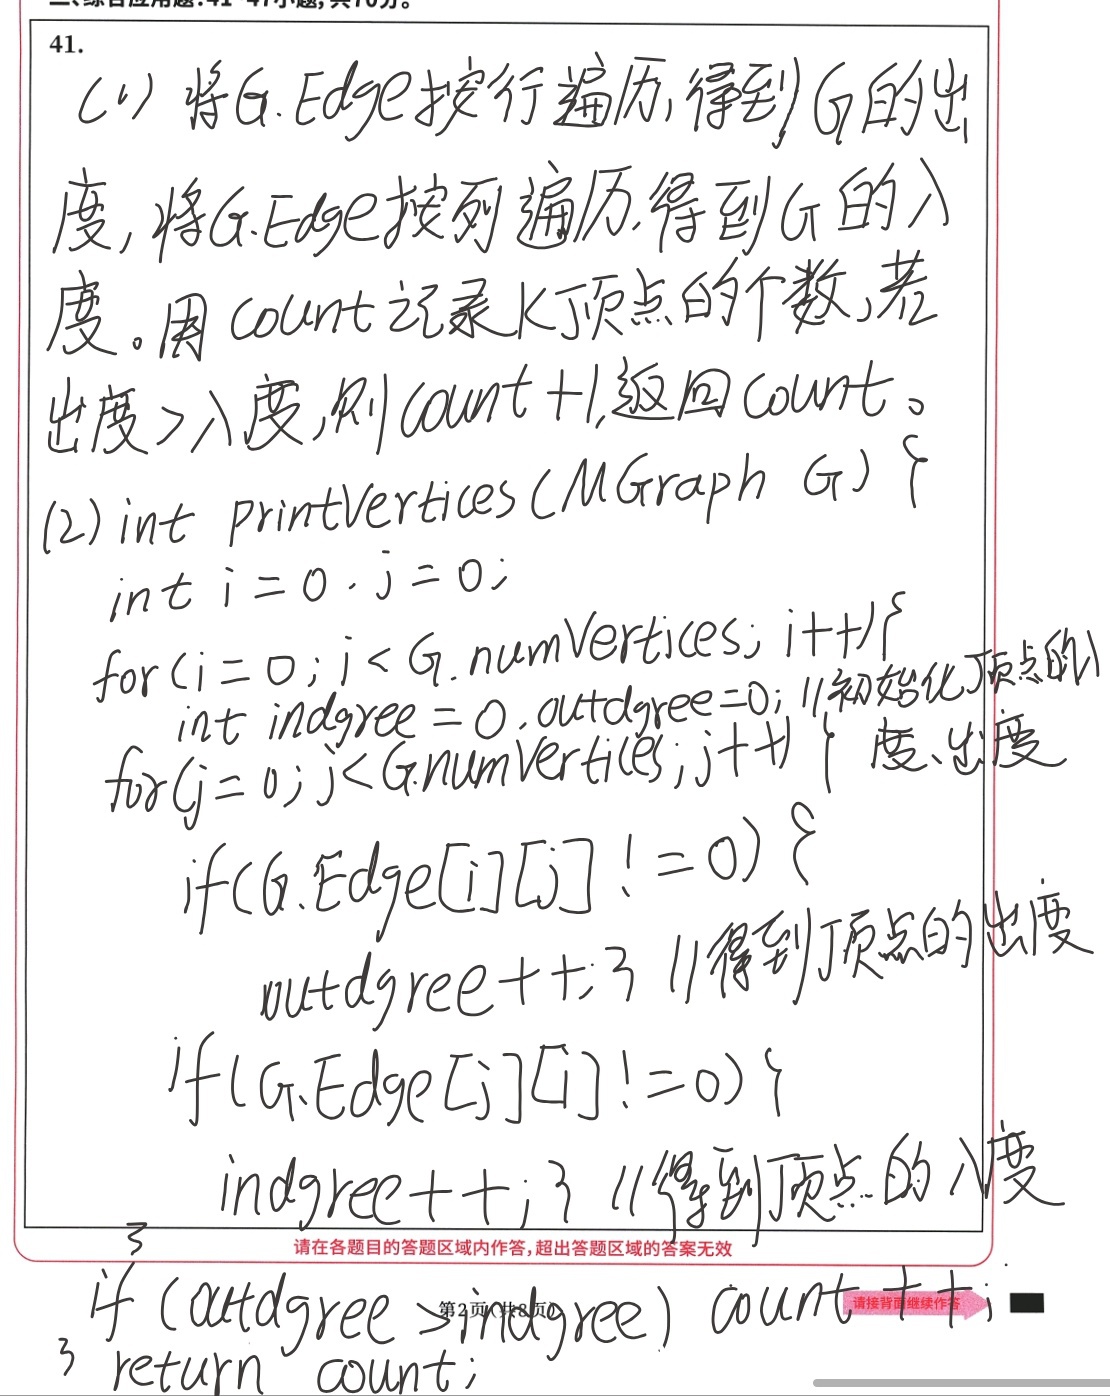 二、综合应用题:41~47小题,共70分。
41.
(1) 将G.Edge按行遍历,得到G的出
度,将G.Edge按列遍历,得到G的入
度。用count记录K顶点的个数,若
出度>入度,则count+1,返回count。
(2) int printVertices(MGraph G) {
int i = 0, j = 0;
for(i = 0; i < G.numVertices; i++){
int indgree = 0, outdgree=0; //初始化顶点的入
for(j = 0; j<G.numVertices; j++) { 度、出度
if(G.Edge[i][j] != 0) {
outdgree++;} //得到顶点的出度
if(G.Edge[j][i] != 0) {
indgree++;} //得到顶点的入度
}
请在各题目的答题区域内作答,超出答题区域的答案无效
if (outdgree > indgree) count++;
第2页(共8页)
请接背面继续作答
} return count;